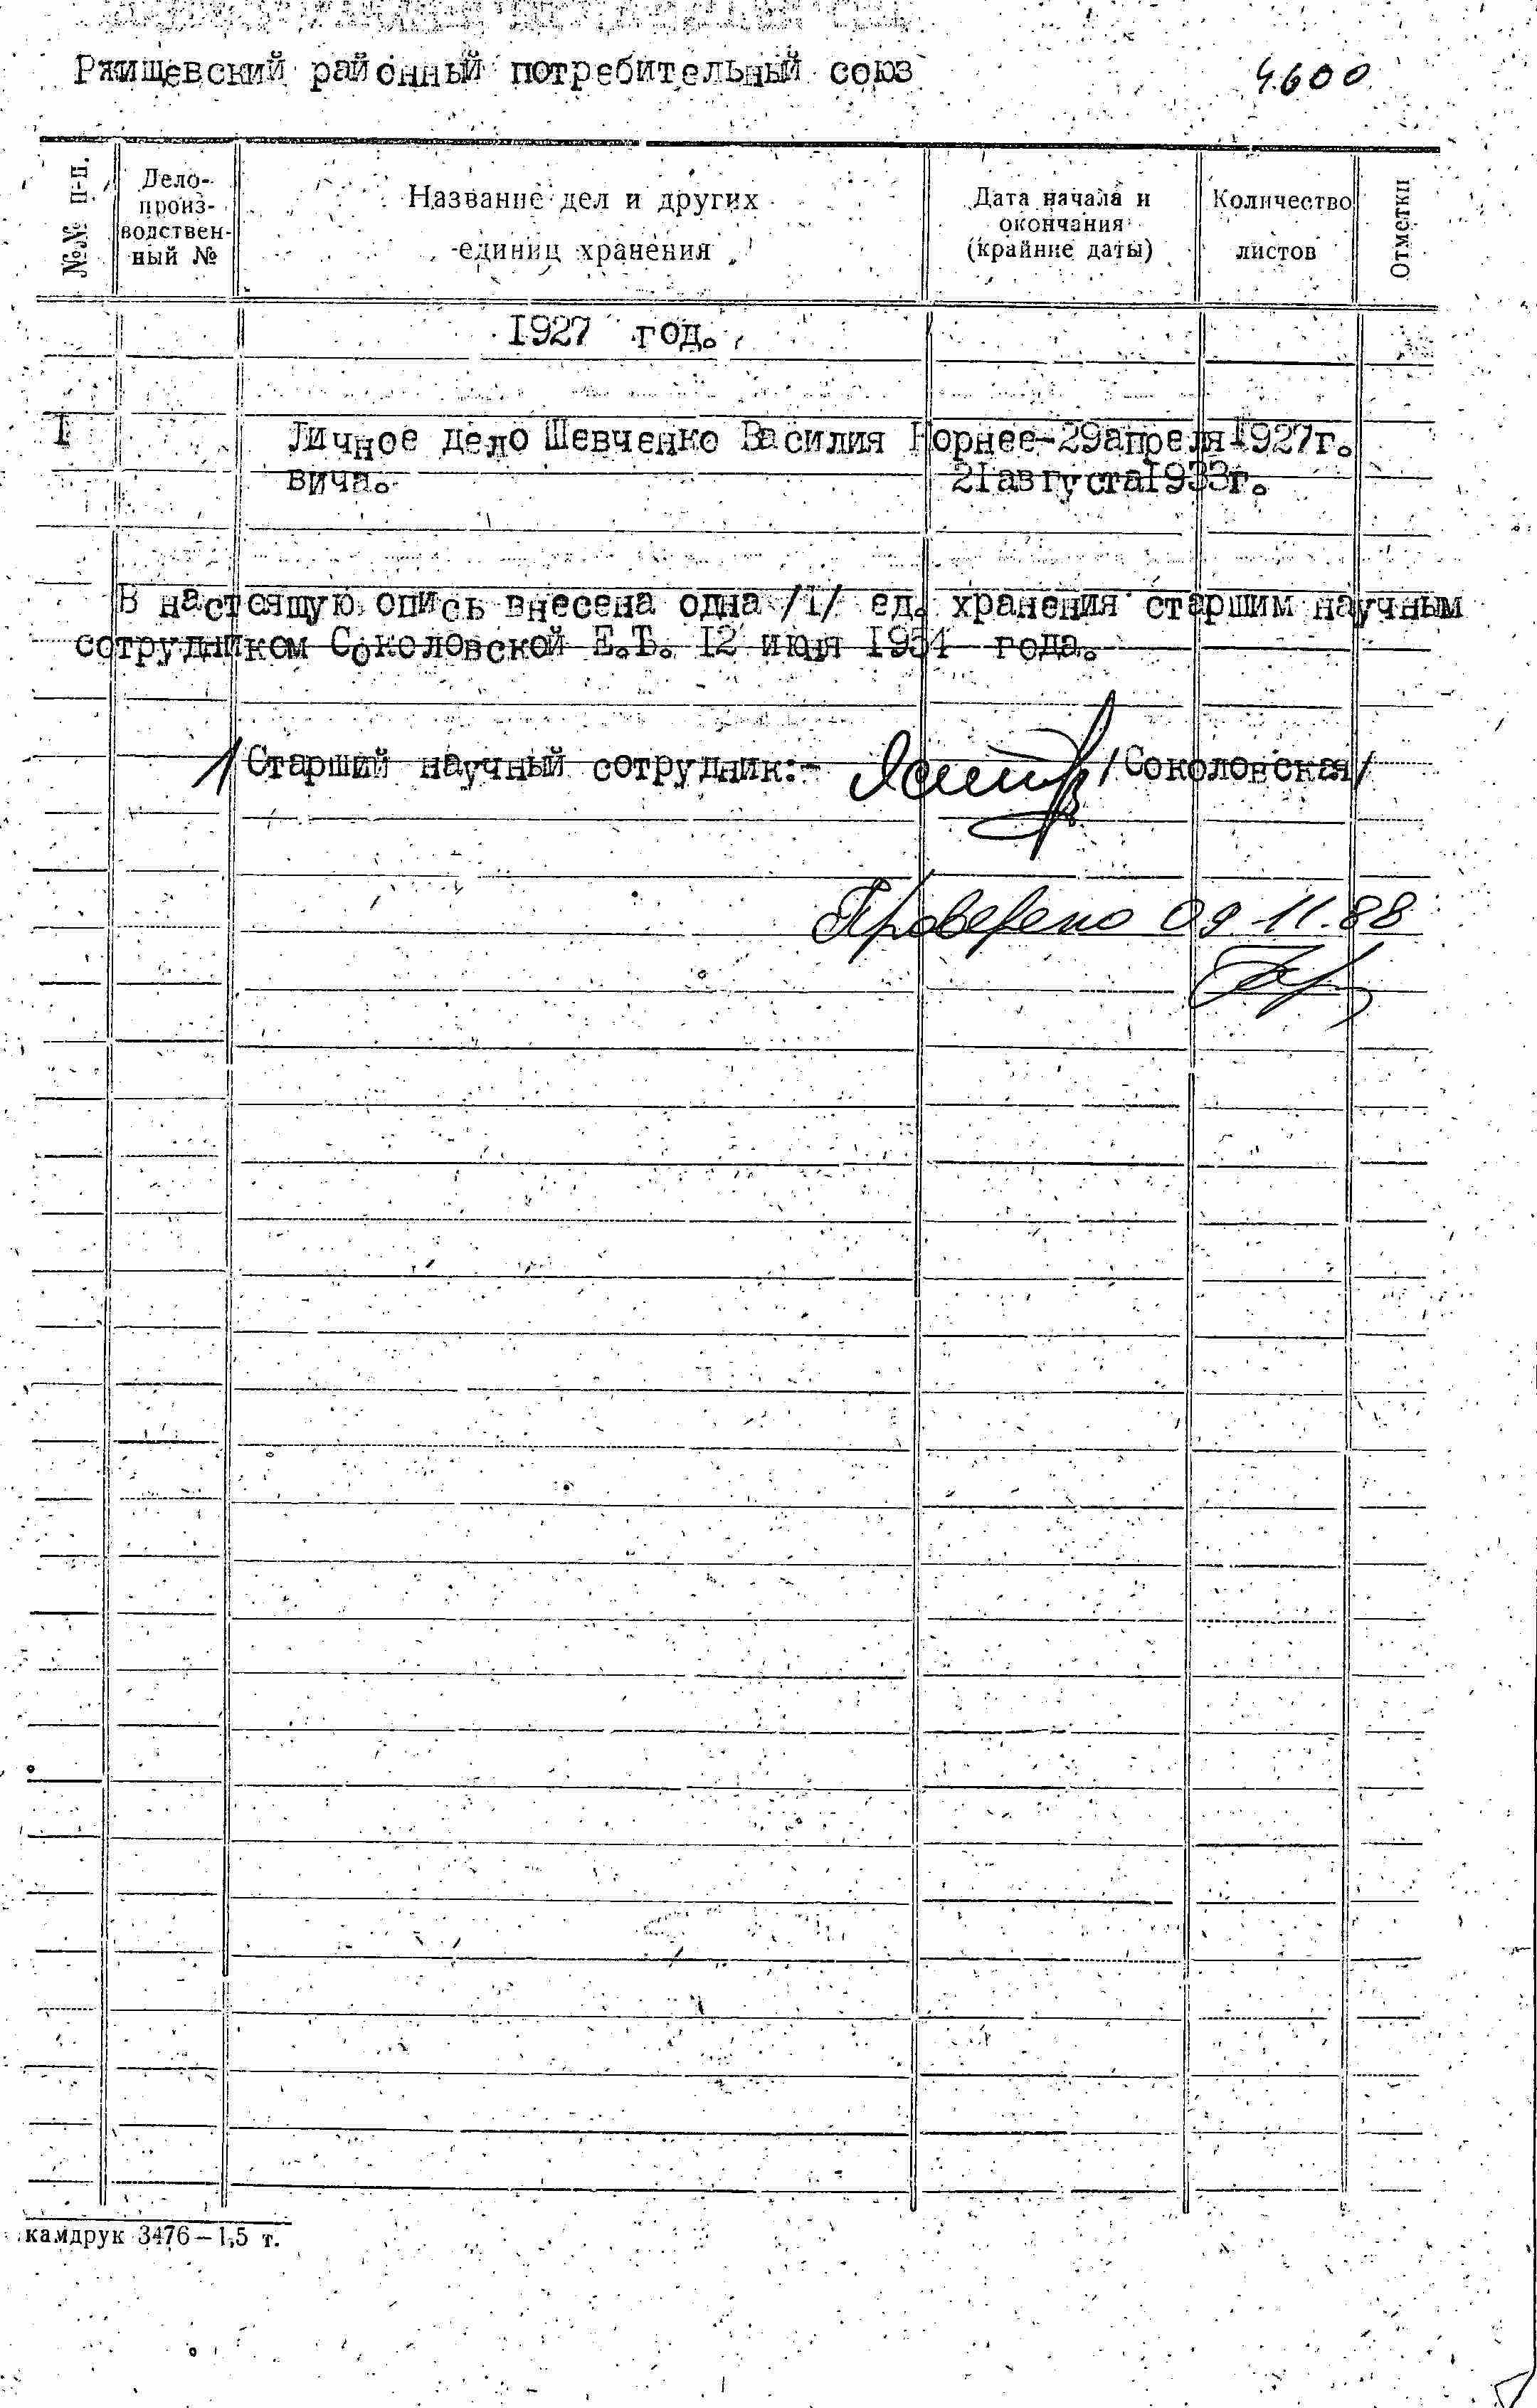 Ржищевский районный потребительный союз 4.600
№№ п-п.
Дело-
произ-
водствен-
ный №
Название дел и других
единиц хранения
Дата начала и
окончания
(крайние даты)
Количество
листов
Отметки
1927 год.
I Личное дело Шевченко Василия Корнее- 29апреля1927г.
вича. 21августа1933г.
В настоящую опись внесена одна /1/ ед. хранения старшим научным
сотрудником Соколовской Е.Т. 12 июля 1954 года.
Старший научный сотрудник:- /Соколовская/
Проверено 09.11.88
камдрук 3476–1,5 т.